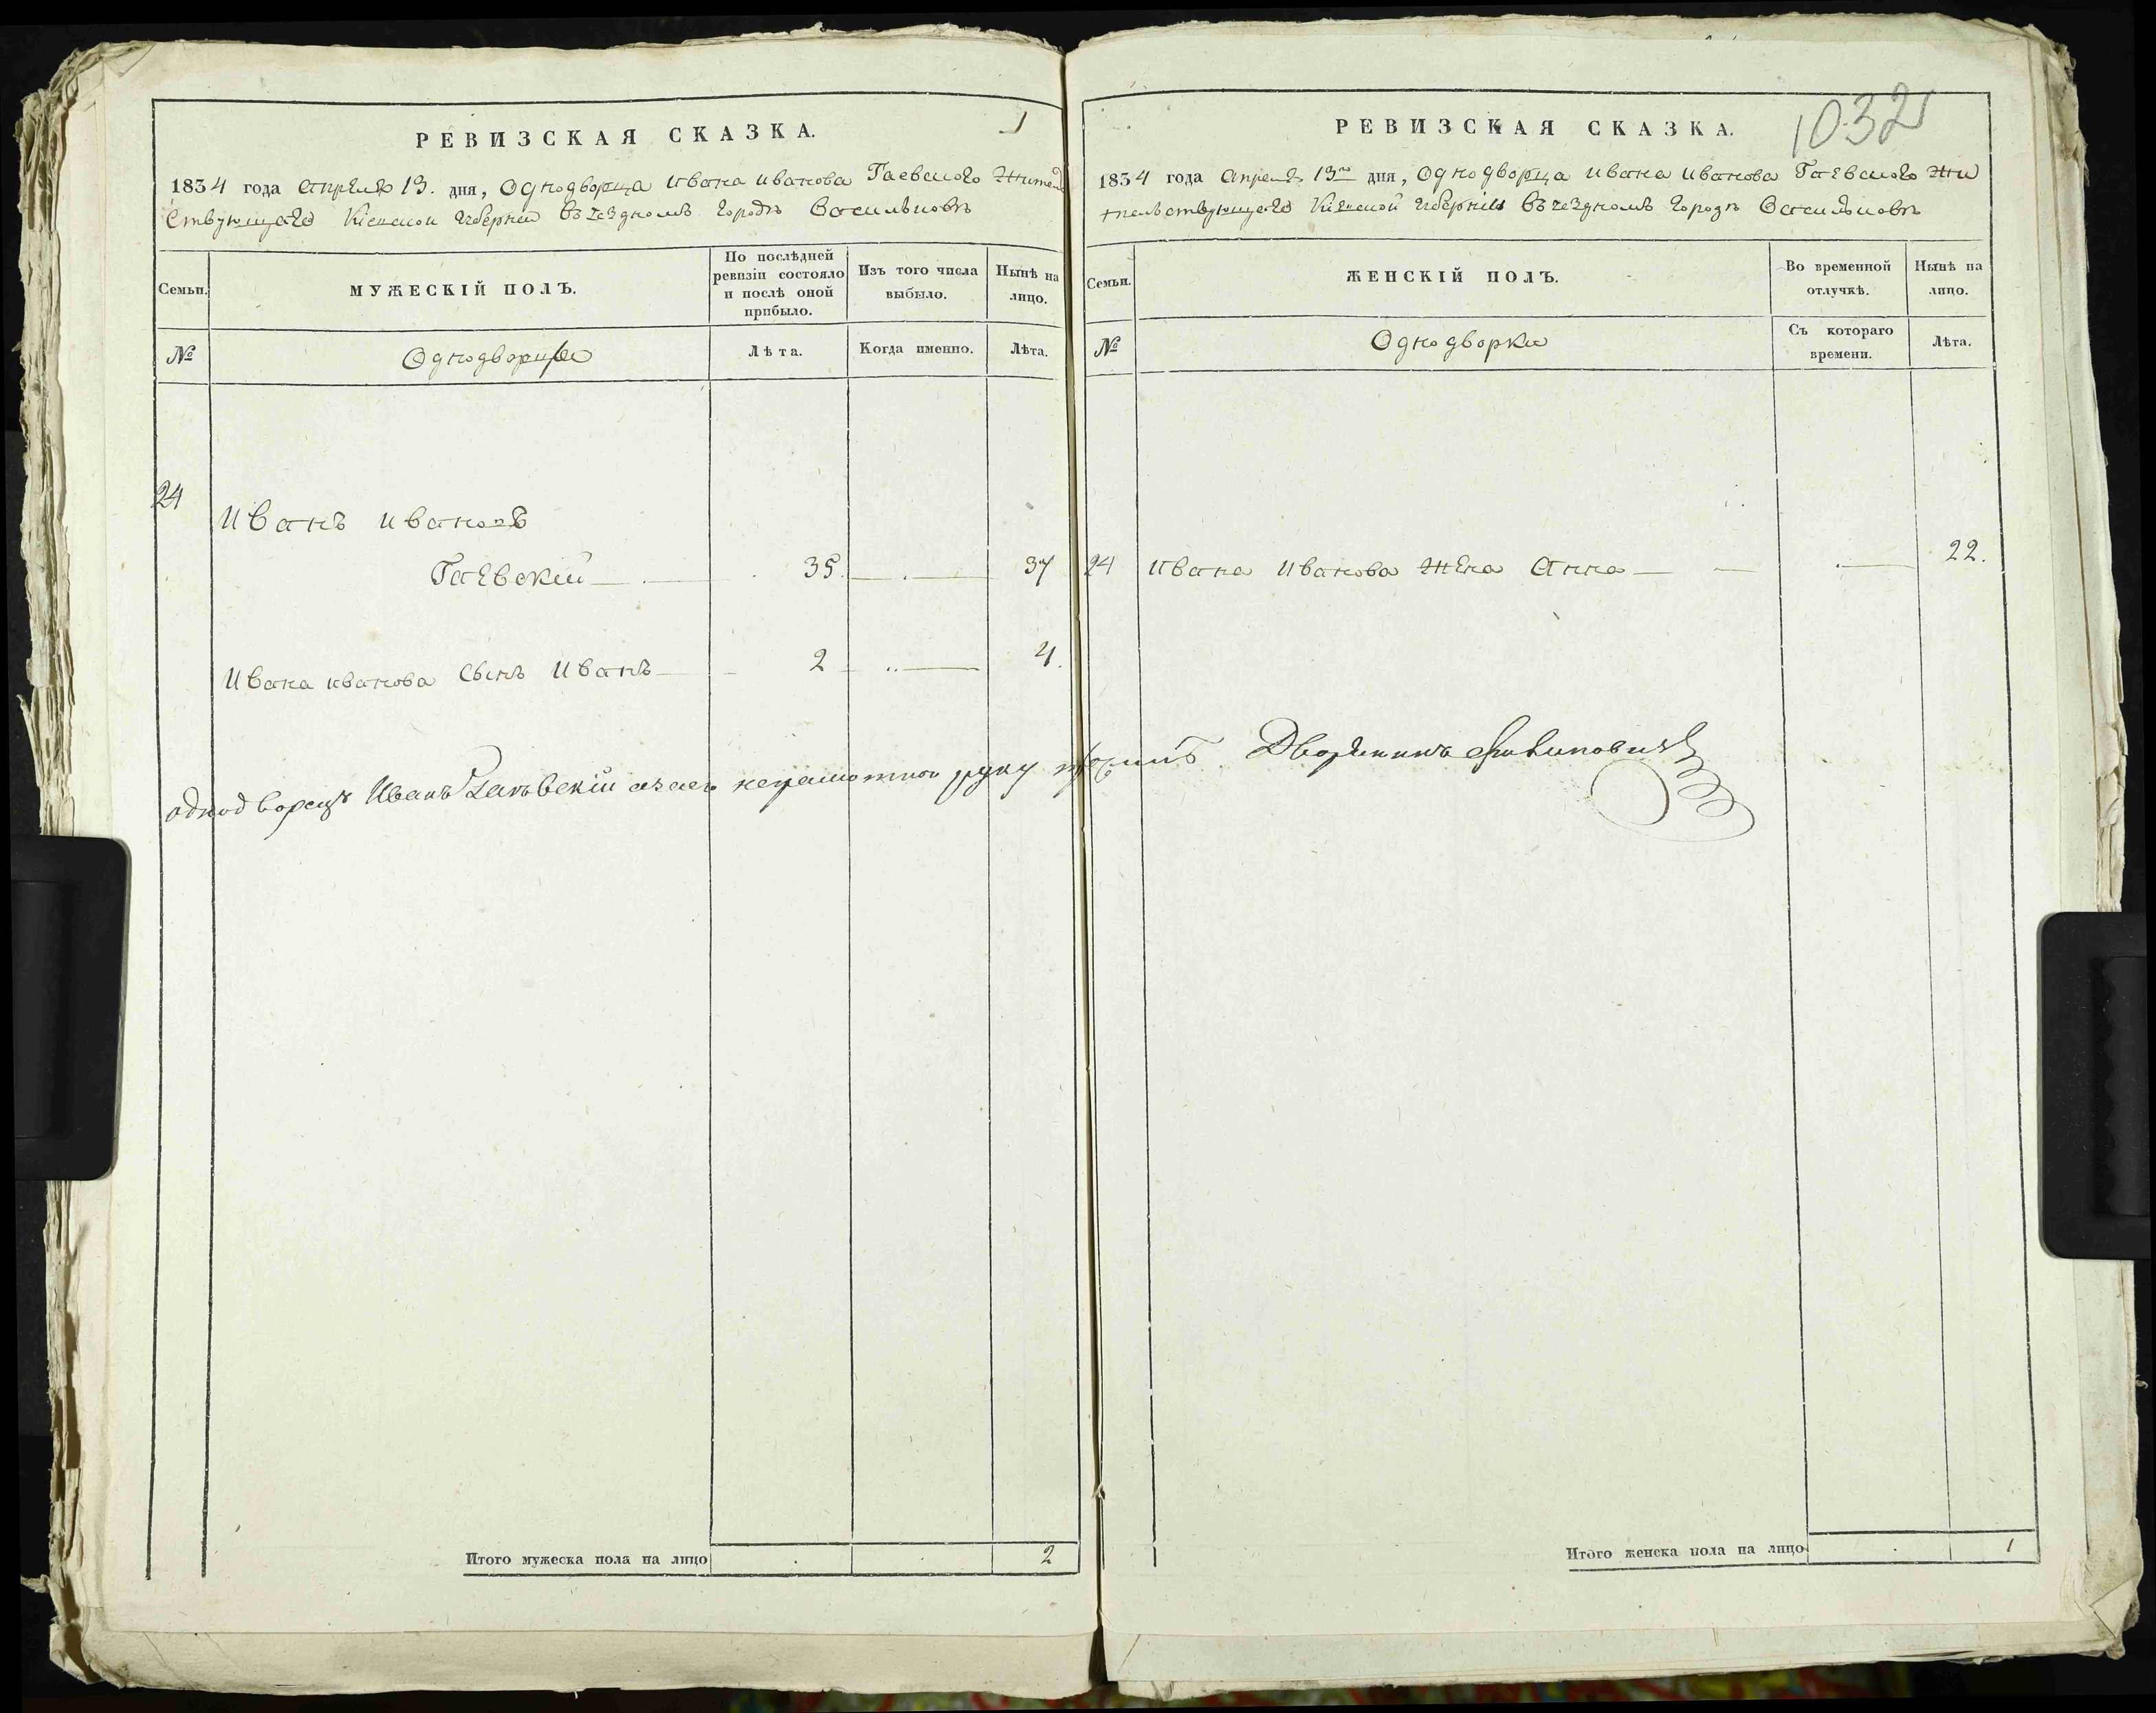 РЕВИЗСКАЯ СКАЗКА.
1834 года Апреля 13. дня, Однодворца Ивана Иванова Гаевского Жител
ствующаго Кіевской Губерніи въ уездномъ городѣ Василковѣ
Семьи.
МУЖЕСКІЙ ПОЛЪ.
По послѣдней
ревизіи состояло
и послѣ оной
прибыло.
Изъ того числа
выбыло.
Нынѣ на
лицо.
№
Однодворцы
Лѣта.
Когда именно.
Лѣта.
24
Иванъ Ивановъ
Гаевскій 35. 37
Ивана Иванова Сынъ Иванъ 2 4.
однодворецъ Иванъ Гаевскій а за его неграмотной руку
Итого мужеска пола на лицо 2
1032
РЕВИЗСКАЯ СКАЗКА.
1834 года Апреля 13го дня, Однодворца Ивана Иванова Гаевского Жи
тельствующаго Кіевской Губерніи въ уездномъ городѣ Василковѣ
Семьи.
ЖЕНСКІЙ ПОЛЪ.
Во временной
отлучкѣ.
Нынѣ на
лицо.
№
Однодворки
Съ котораго
времени.
Лѣта.
24 Ивана Иванова Жена Анна 22.
Дворянинъ
Итого женска пола на лицо 1